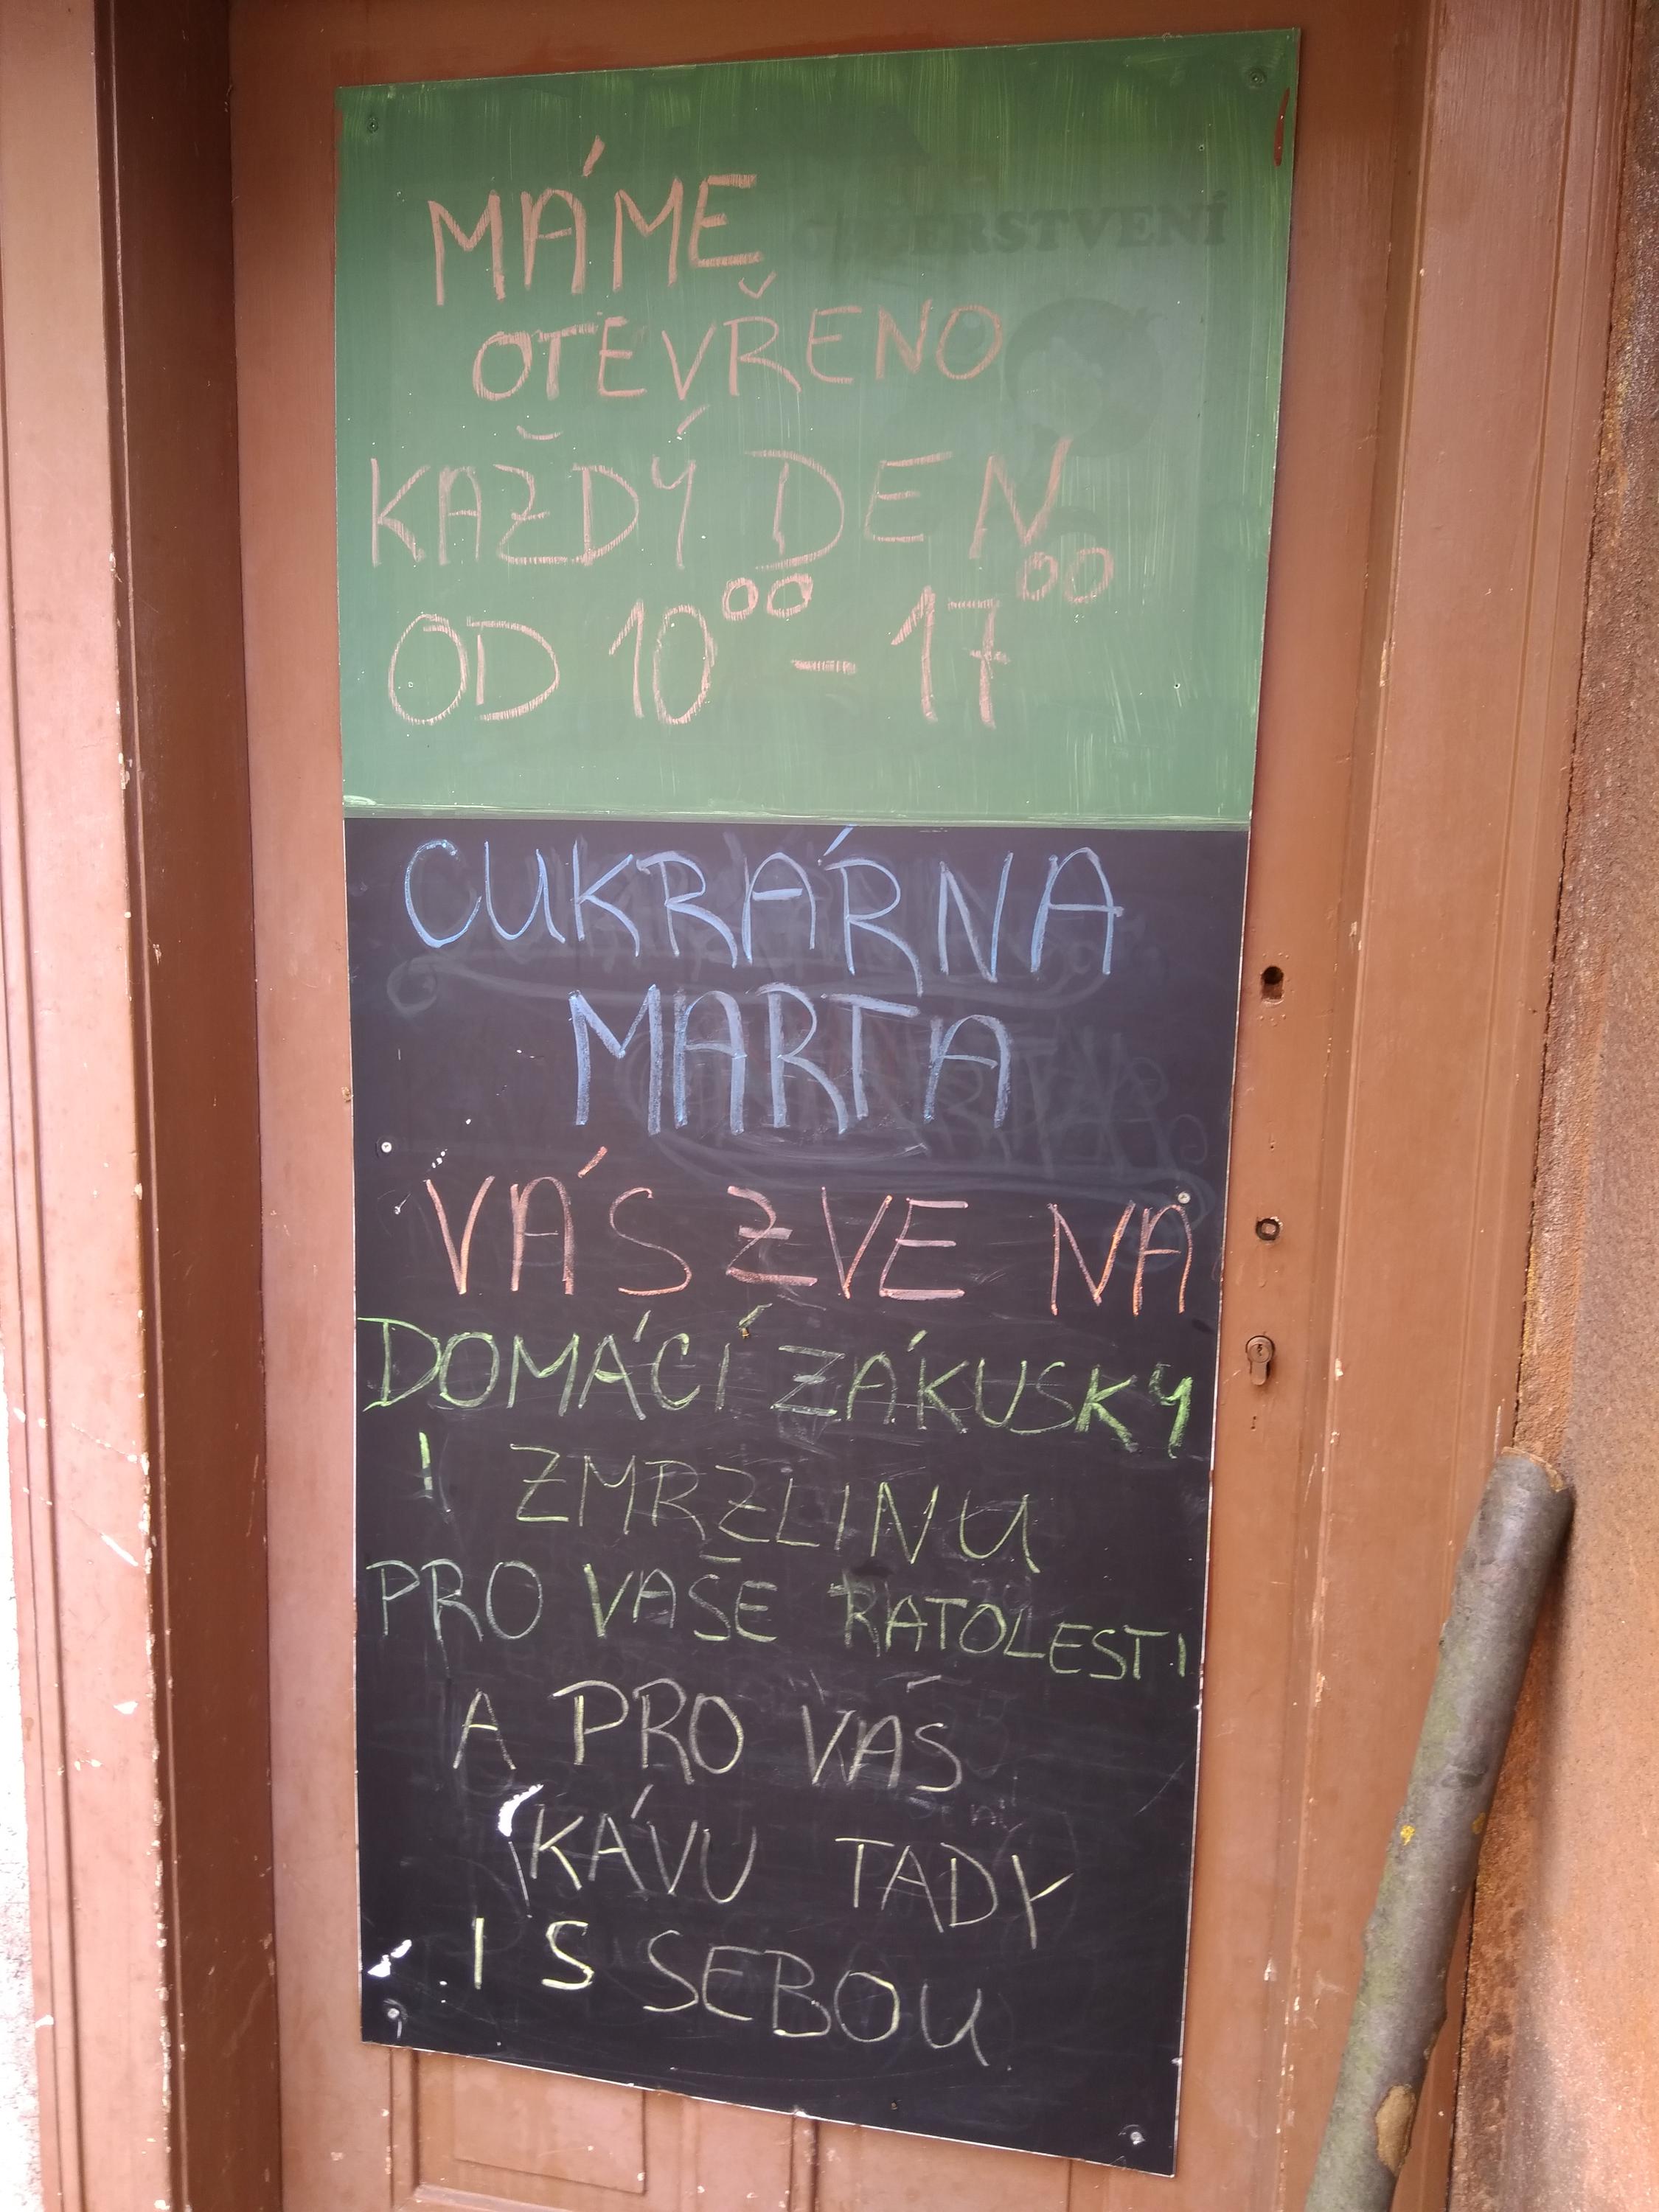 MÁME
OTEVŘENO
KAŽDÝ DEN
OD 10⁰⁰ - 17⁰⁰
CUKRÁRNA
MARTA
VÁS ZVE NA
DOMÁCÍ ZÁKUSKY
I ZMRZLINU
PRO VAŠE RATOLESTI
A PRO VÁS
KÁVU TADY
I S SEBOU